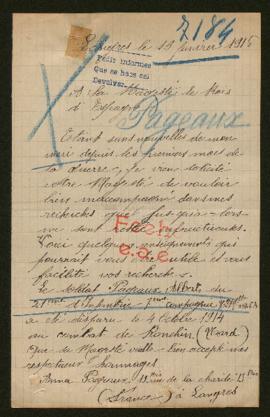 7184
Langres le 13 janvier 1915
Pedir informes
Que se hace sin
Devolver
A Sa Majesté le Roi
d'Espagne
Pageaux
Etant sans nouvelles de mon
mari depuis les premiers mois de
la guerre, je viens
votre Majesté de vouloir
bien dans mes
recherches que
me sont restées infructueuses.
Voici quelques renseignements qui
pourrait vous être utile et vous
facilité vos recherches.
Le soldat Pageaux Albert, du
21ème d'Infanterie 7ème compagnie
a été disparu le 4 Octobre 1914
au combat de Ronchin (Nord)
Que sa Majesté veille bien accepté mes
respectueux hommages
Anna Pageaux, rue de la charité
(France) à Langres